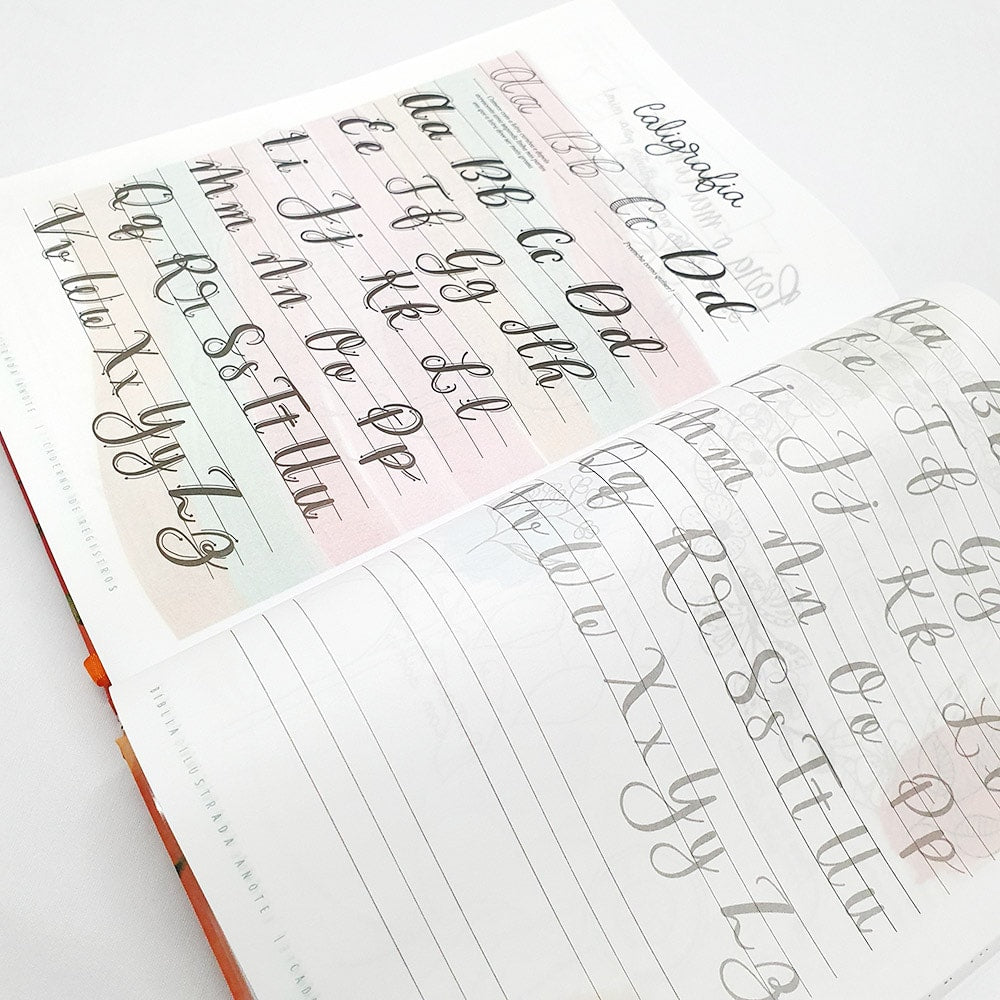 caligrafia
Aa Bb Cc Dd
Preencha como quiser!
Aa Bb Cc Dd
Ee Ff Gg Hh
Ii Jj Kk Ll
Mm Nn Oo Pp
Qq Rr Ss Tt Uu
Vv Ww Xx Yy Zz
ANOTE | CADERNO DE REGISTROS
Aa Bb
Ee Ff Gg
Ii Jj Kk Ll
Mm Nn Oo Pp
Qq Rr Ss Tt Uu
Vv Ww Xx Yy Zz
BÍBLIA ILUSTRADA ANOTE |